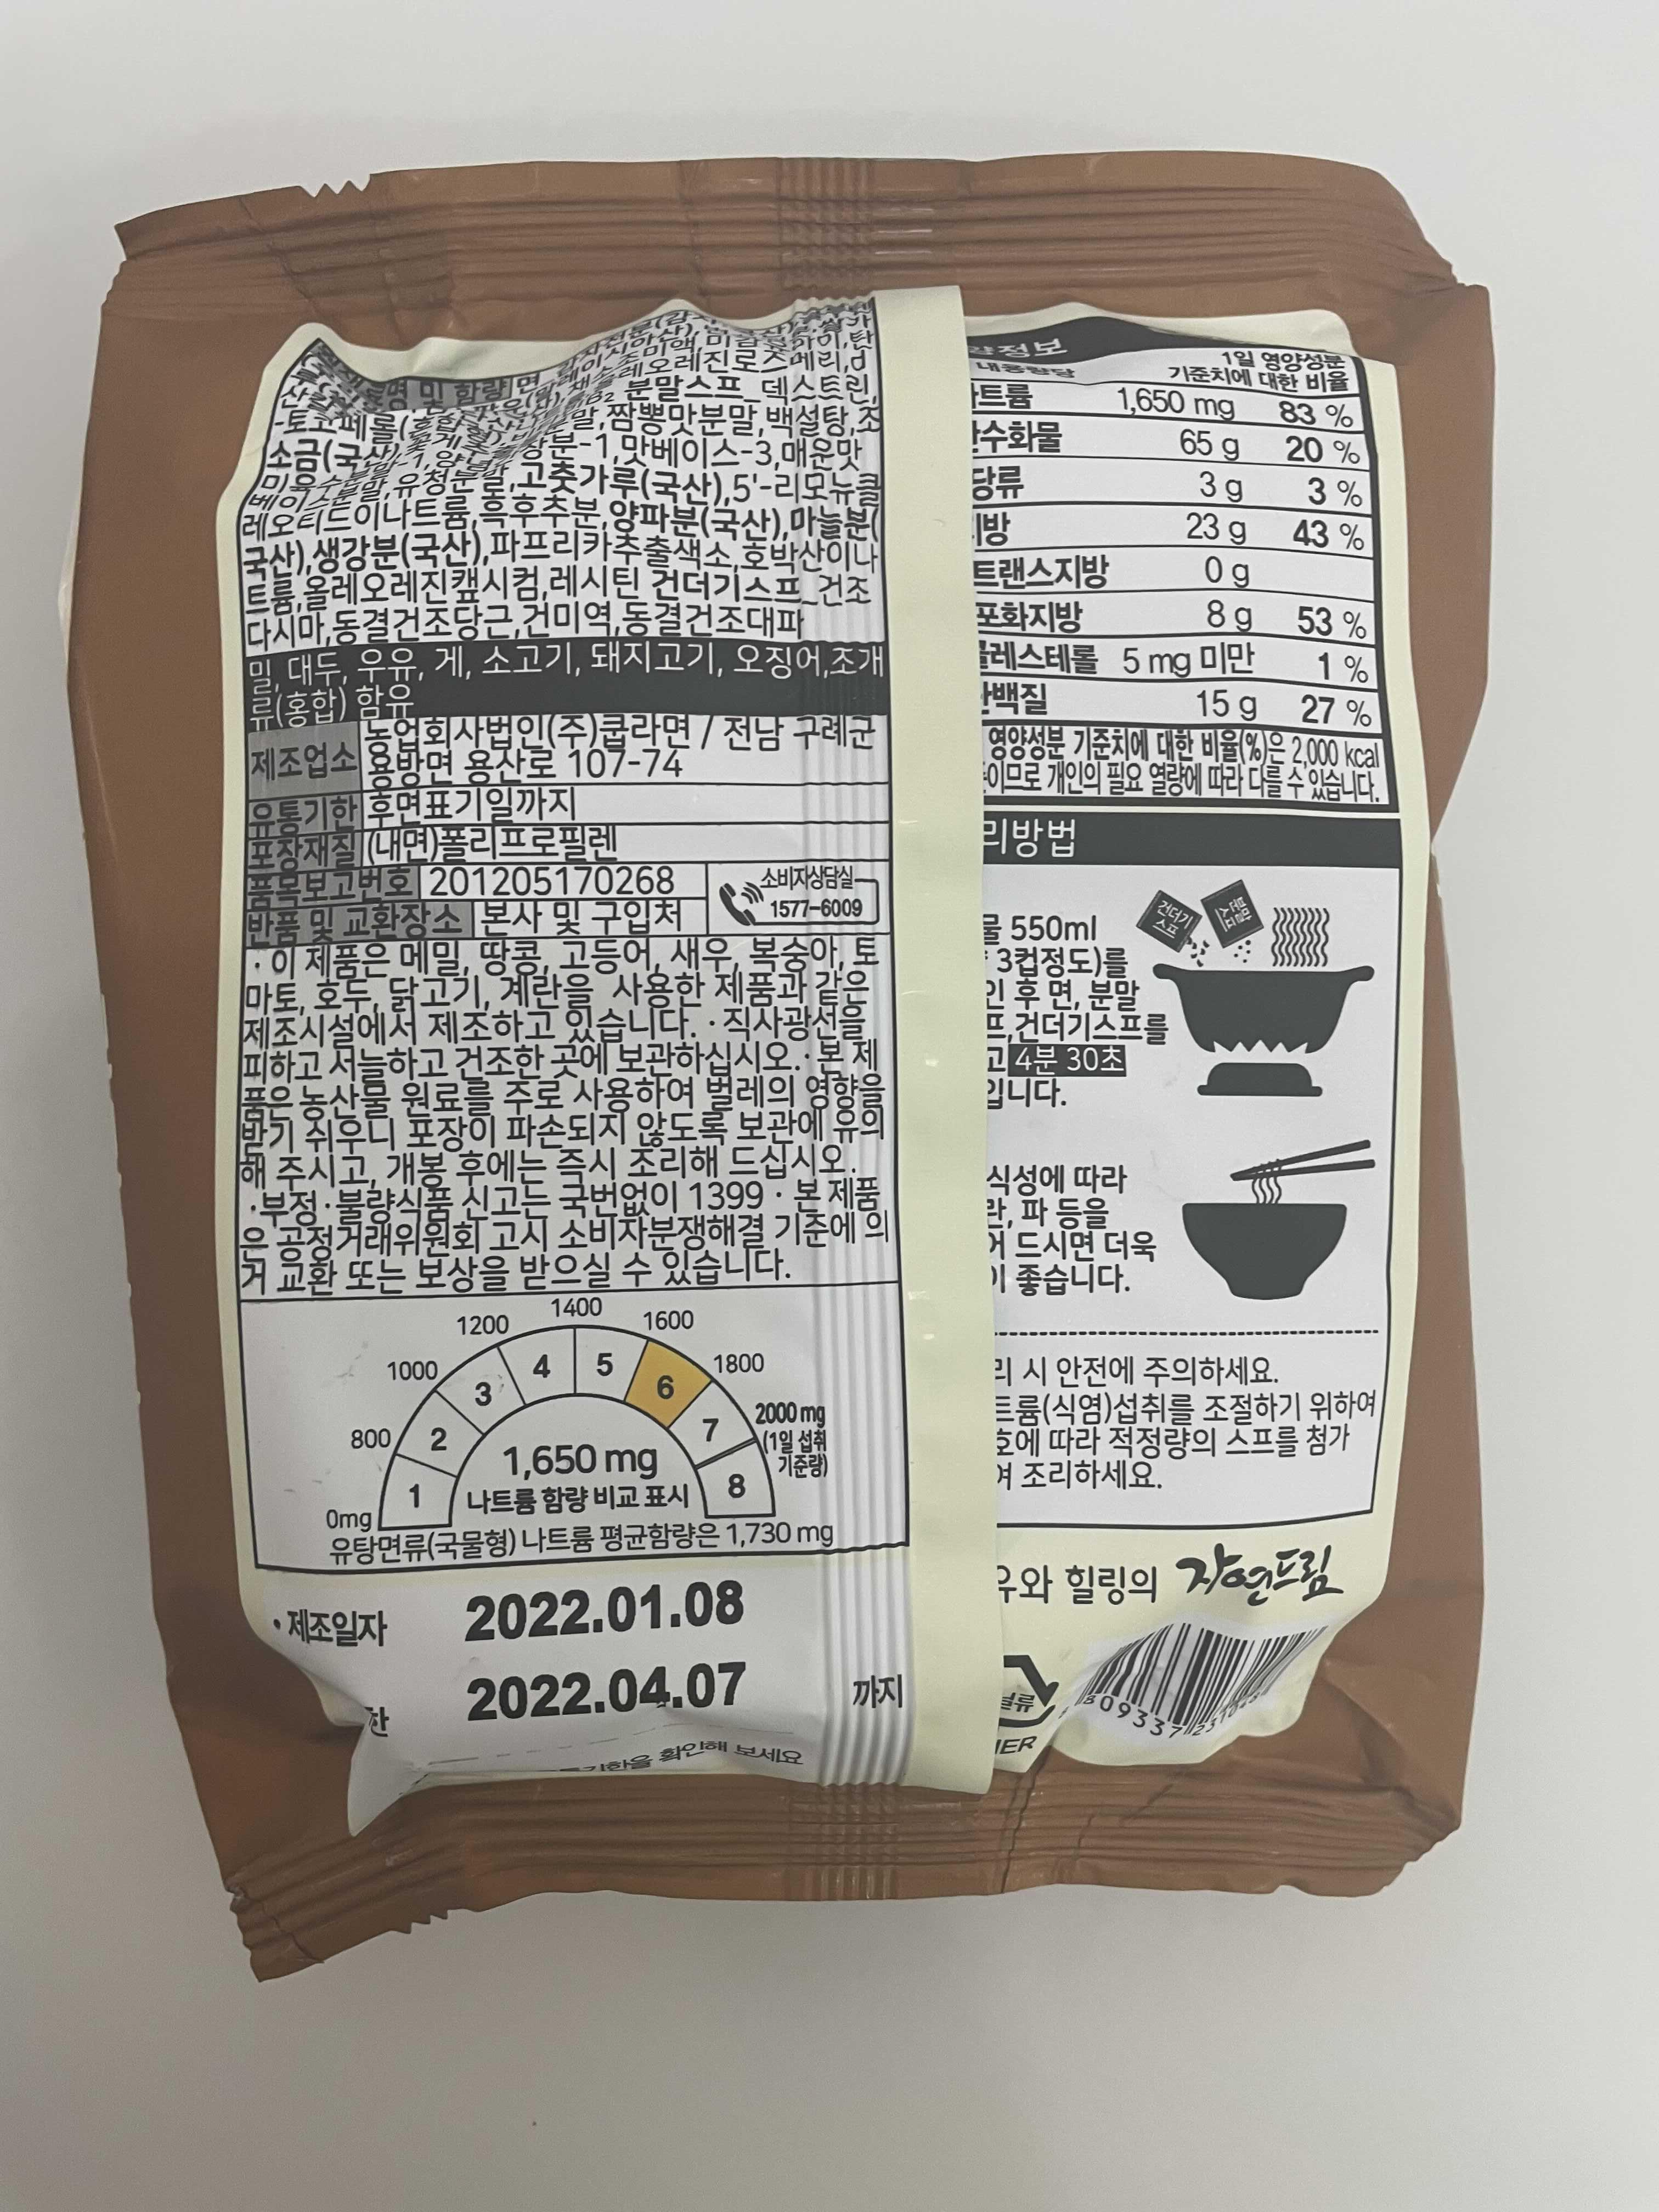 명 및 함량 면
분말스프_덱스트린,
말,짬뽕맛분말,백설탕,조
소금(국산), 분-1,맛베이스-3,매운맛
베이스분말,유청분말,고춧가루(국산),5'-리보뉴클
레오티드이나트륨,흑후추분,양파분(국산),마늘분(
국산),생강분(국산),파프리카추출색소,호박산이나
트륨,올레오레진캪시컴,레시틴 건더기스프_건조
다시마,동결건조당근,건미역,동결건조대파
밀, 대두, 우유, 게, 소고기, 돼지고기, 오징어,조개
류(홍합) 함유
제조업소 농업회사법인(주)쿱라면 / 전남 구례군
용방면 용산로 107-74
유통기한 후면표기일까지
포장재질 (내면)폴리프로필렌
품목보고번호 201205170268
반품 및 교환장소 본사 및 구입처
소비자상담실
1577-6009
· 이 제품은 메밀, 땅콩, 고등어, 새우, 복숭아, 토
마토, 호두, 닭고기, 계란을 사용한 제품과 같은
제조시설에서 제조하고 있습니다. · 직사광선을
피하고 서늘하고 건조한 곳에 보관하십시오. · 본 제
품은 농산물 원료를 주로 사용하여 벌레의 영향을
받기 쉬우니 포장이 파손되지 않도록 보관에 유의
해 주시고, 개봉 후에는 즉시 조리해 드십시오.
·부정·불량식품 신고는 국번없이 1399 · 본 제품
은 공정거래위원회 고시 소비자분쟁해결 기준에 의
거 교환 또는 보상을 받으실 수 있습니다.
0mg 800 1000 1200 1400 1600 1800 2000 mg
(1일 섭취
기준량)
1 2 3 4 5 6 7 8
1,650 mg
나트륨 함량 비교 표시
유탕면류(국물형) 나트륨 평균함량은 1,730 mg
· 제조일자 2022.01.08
한 2022.04.07 까지
기한을 확인해 보세요
정보
1일 영양성분
기준치에 대한 비율
트륨 1,650 mg 83 %
수화물 65 g 20 %
당류 3 g 3 %
방 23 g 43 %
트랜스지방 0 g
포화지방 8 g 53 %
레스테롤 5 mg 미만 1 %
백질 15 g 27 %
영양성분 기준치에 대한 비율(%)은 2,000 kcal
이므로 개인의 필요 열량에 따라 다를 수 있습니다.
리방법
물 550ml
3컵정도)를
인 후 면, 분말
프,건더기스프를
고 4분 30초
입니다.
건더기
스프
분말
스프
식성에 따라
란, 파 등을
어 드시면 더욱
이 좋습니다.
리 시 안전에 주의하세요.
트륨(식염)섭취를 조절하기 위하여
호에 따라 적정량의 스프를 첨가
여 조리하세요.
유와 힐링의 자연드림
닐류
HER